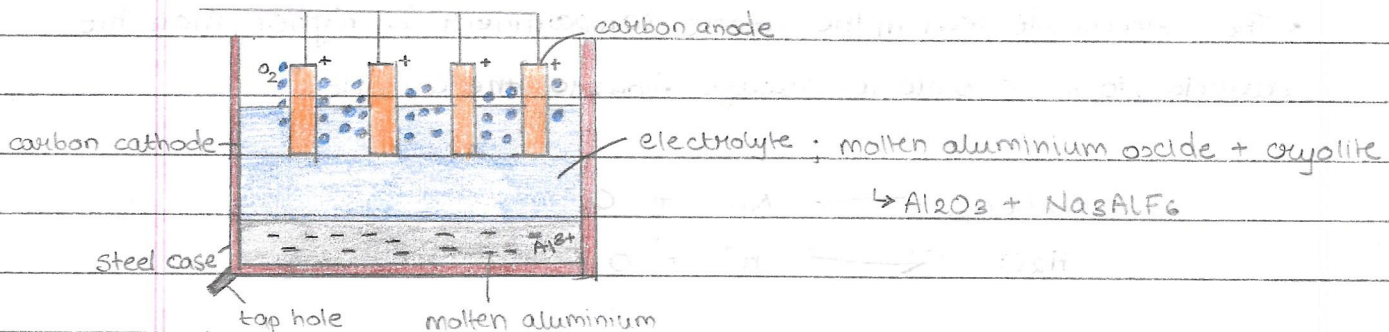 carbon anode
O2 + + + +
carbon cathode
electrolyte ; molten aluminium oxide + cryolite
↳ Al2O3 + Na3AlF6
Al3+
steel case
tap hole
molten aluminium